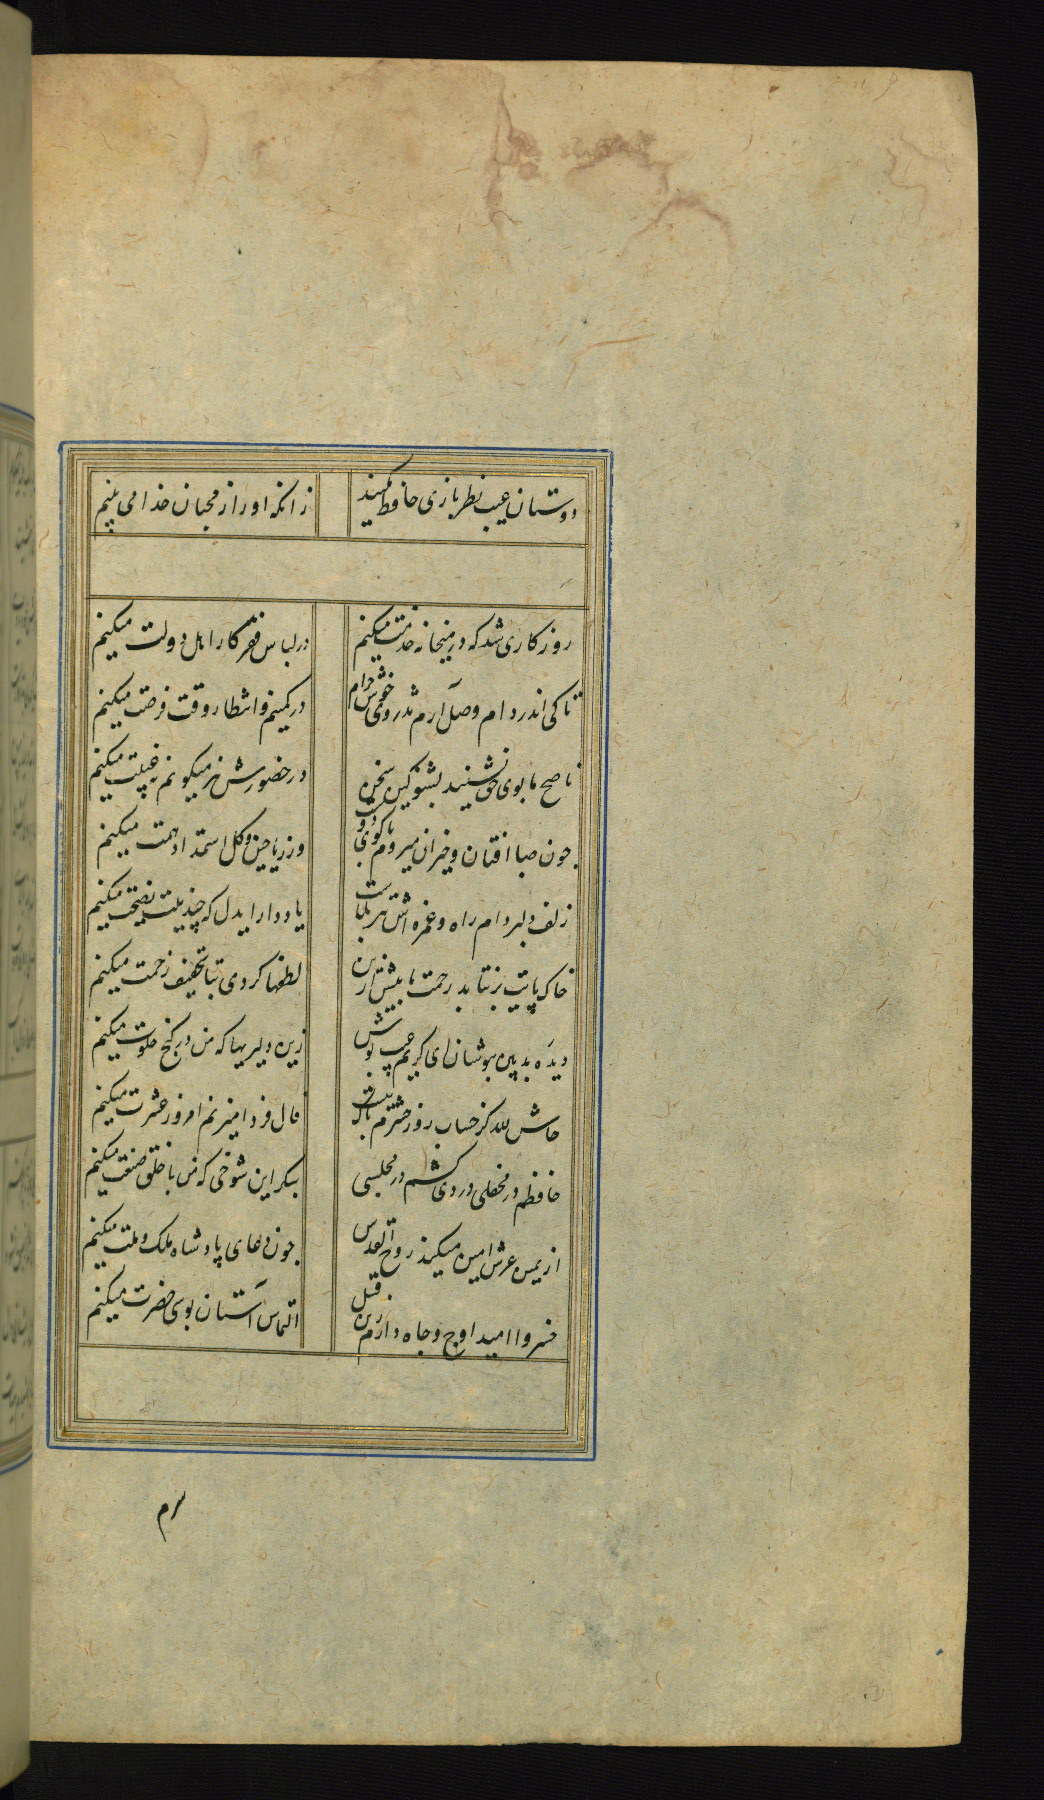 دوستان عیب نظربازی حافظ مکنید زانکه او را از محبان خدا می بینم
روزکاری شد که در میخانه خدمت میکنم در لباس فقر کار اهل دولت میکنم
تا کی اندر دام وصل آرم تذروی خوش خرام در کمینم و انتظار وقت فرصت میکنم
ناصح ما بوی حق نشنید بشنو کین سخن در حضورش نیز میکویم نه غیبت میکنم
چون صبا افتان و خیزان میروم تا کوی دوست وز ریاحین و کل استمداد همت میکنم
زلف دلبر دام راه و غمزه اش تیر بلاست یاد دار ایدل که چندینت نصیحت میکنم
خاک پایت بر نتابد زحمت ما بیش ازین لطفها کردی بتا تخفیف زحمت میکنم
دیده بدبین بپوشان ای کریم عیب پوش زین دلیریها که من در کنج خلوت میکنم
حاش لله کز حساب روز حشرم باک نیست فال فردا میزنم امروز عشرت میکنم
حافظم در محفلی دردی کشم در مجلسی بنکر این شوخی که من با خلق صنعت میکنم
از یمین عرش امین میکند روح القدس چون دعای پادشاه ملک و ملت میکنم
خسروا امید اوج و جاه دارم زین قبل التماس آستان بوسی حضرت میکنم